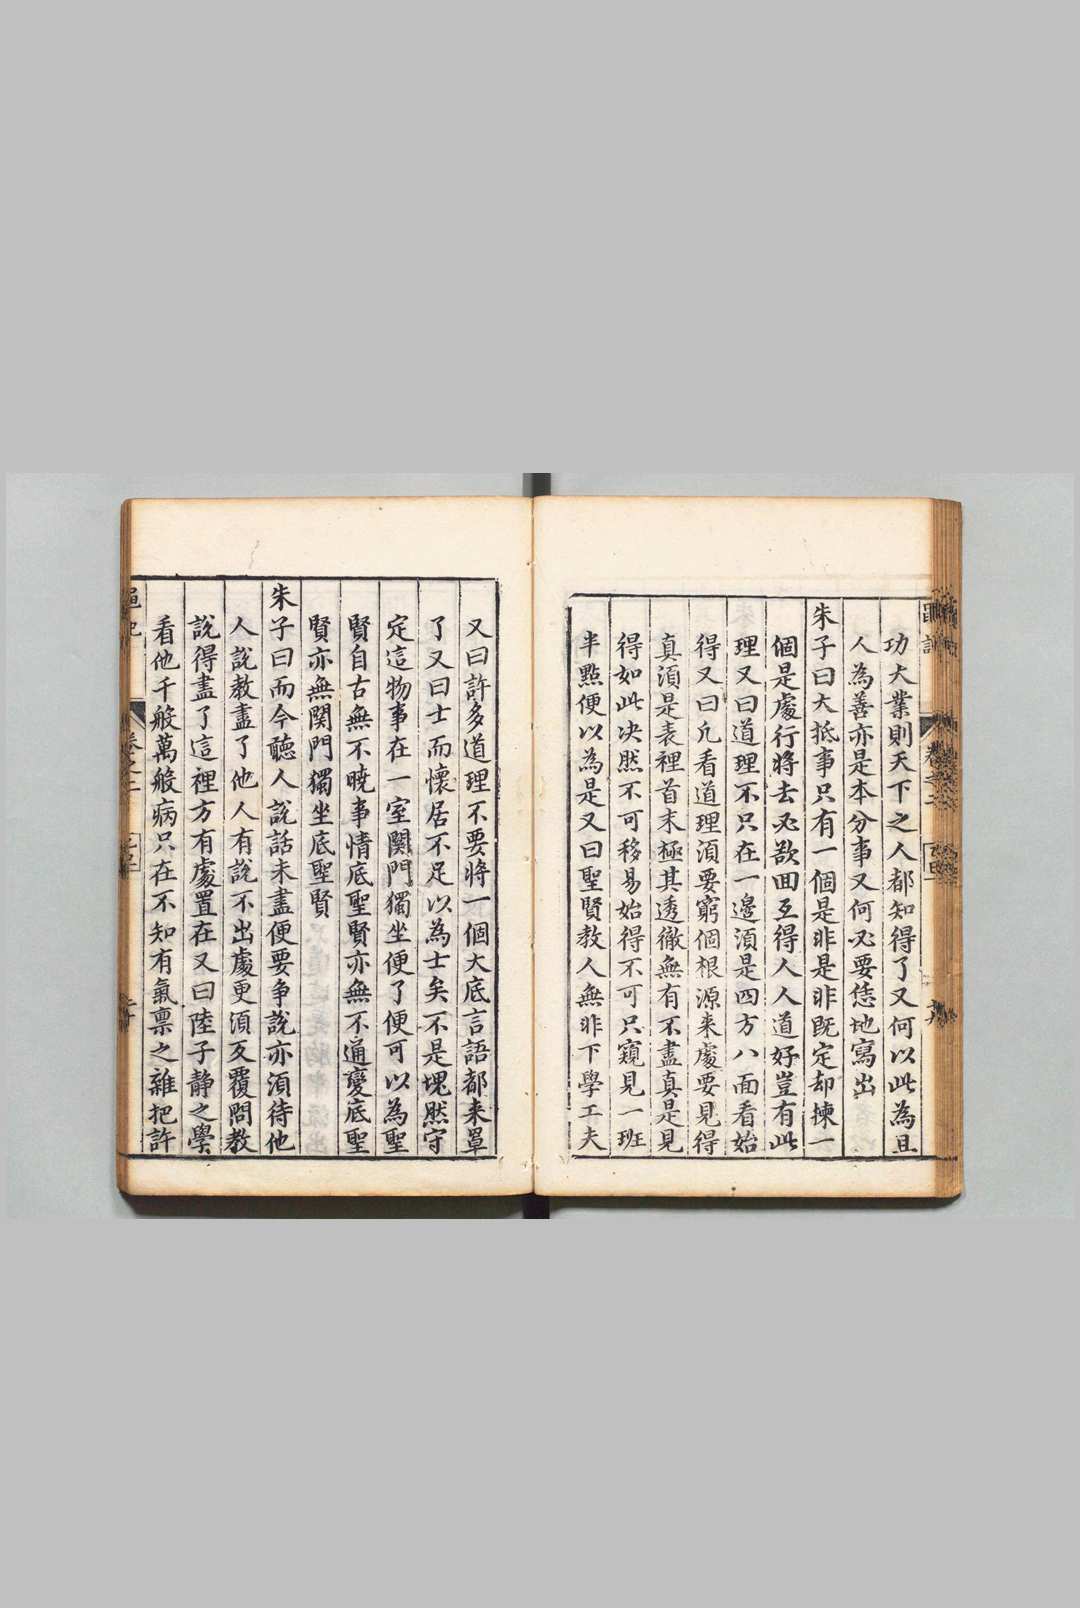 功大業則天下之人都知得了又何以此為且
人為善亦是本分事又何必要恁地寫出
朱子曰大抵事只有一個是非是非既定却揀一
個是處行將去必欲囬互得人人道好豈有此
理又曰道理不只在一邊湏是四方八面看始
得又曰凢看道理湏要窮個根源来處要見得
真湏是表裡首末極其透徹無有不盡真是見
得如此决然不可移易始得不可只窺見一班
半㸃便以為是又曰聖賢教人無非下學工夫
又曰許多道理不要將一個大底言語都来罩
了又曰士而懷居不足以為士矣不是塊然守
定這物事在一室関門獨坐便了便可以為聖
賢自古無不曉事情底聖賢亦無不通變底聖
賢亦無関門獨坐底聖賢
朱子曰而今聽人說話未盡便要争說亦湏待他
人說教盡了他人有說不出處更湏反覆問教
說得盡了這裡方有處置在又曰陸子静之學
看他千般萬般病只在不知有氣禀之雜把許